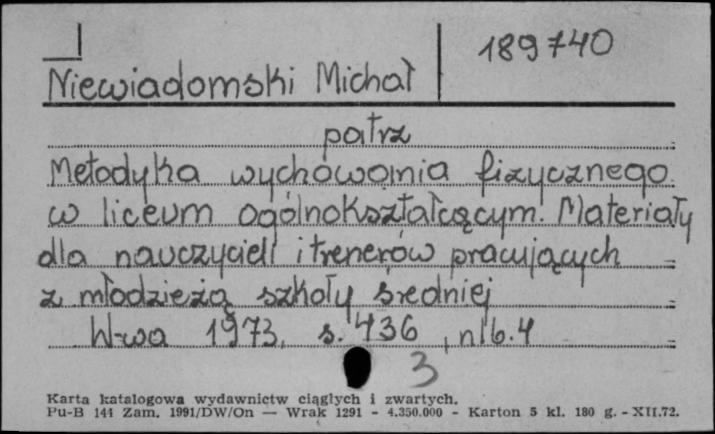 189740
Niewiadomski Michał
patrz
Metodyka wychowania fizycznego
w liceum ogólnokształcącym. Materiały
dla nauczycieli i trenerów pracujących
z młodzieżą szkoły średniej
W-wa 1973, s. 436, nlb. 4
3
Karta katalogowa wydawnictw ciągłych i zwartych.
Pu-B 141 Zam. 1991/DW/On — Wrak 1291 - 4.350.000 - Karton 5 kl. 180 g. - XII.72.